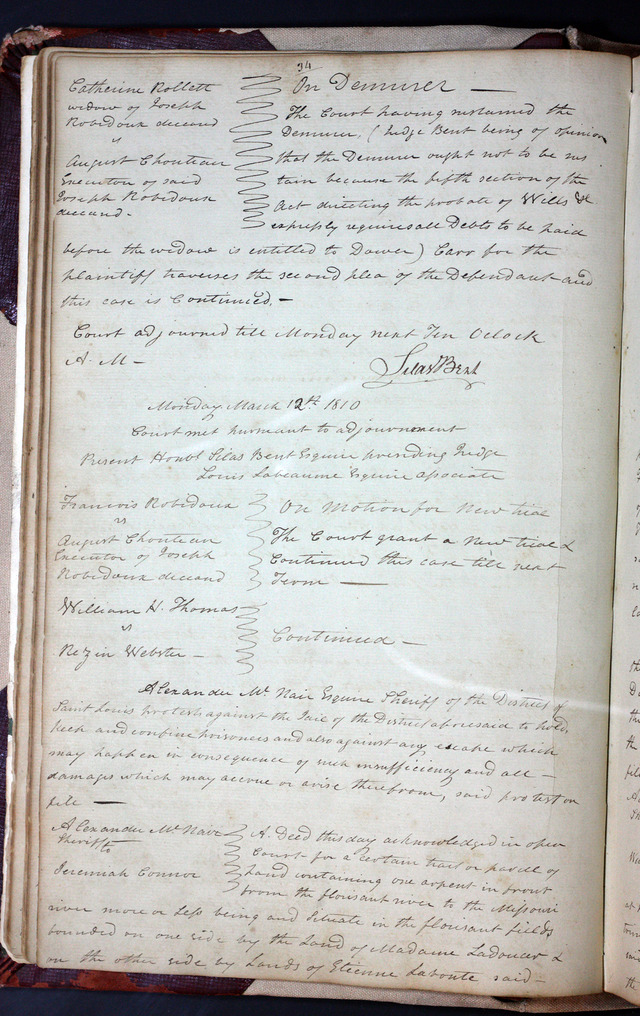 34
Catherine Rollett
widow of Joseph
Robidoux deceased
vs
August Chouteau
Executor of said
Joseph Robidoux
deceased.
On Demurrer —
The Court having sustained the
Demurrer, (Judge Bent being of opinion
that the Demurrer ought not to be sus
tain because the fifth section of the
Act directing the probate of Wills &c
expressly requires all Debts to be paid
before the widow is entitled to Dower) Carr for the
plaintiff traverses the second plea of the Defendant and
this case is Continued. —
Court adjourned till Monday next Ten OClock
A. M —
Silas Bent
Monday March 12th 1810
Court met pursuant to adjournment
Present Honbl Silas Bent Esquire presiding Judge
Louis Labeaume Esquire associate
Francois Robidoux
vs
August Chouteau
Executor of Joseph
Robidoux deceased
On Motion for New trial
The Court grant a New trial &
Continued this case till next
Term —
William H. Thomas
vs
Rezin Webster —
Continued —
Alexander Mc Nair Esquire Sheriff of the District of
Saint Louis protests against the Jail of the District aforesaid to hold,
keep and confine prisoners and also against any escape which
may happen in consequence of such insufficiency and all —
damages which may accrue or arise therefrom, said protest on
file —
Alexander Mc Nair
Sheriff to
Jeremiah Connor
A Deed this day acknowledged in open
Court for a certain tract or parcel of
Land containing one arpent in front
from the flourisant river to the Missouri
river more or Less being and Situate in the flourisant fields
bounded on one side by the Land of Madame Ladoucer &
on the other side by Lands of Etienne Labonte said —